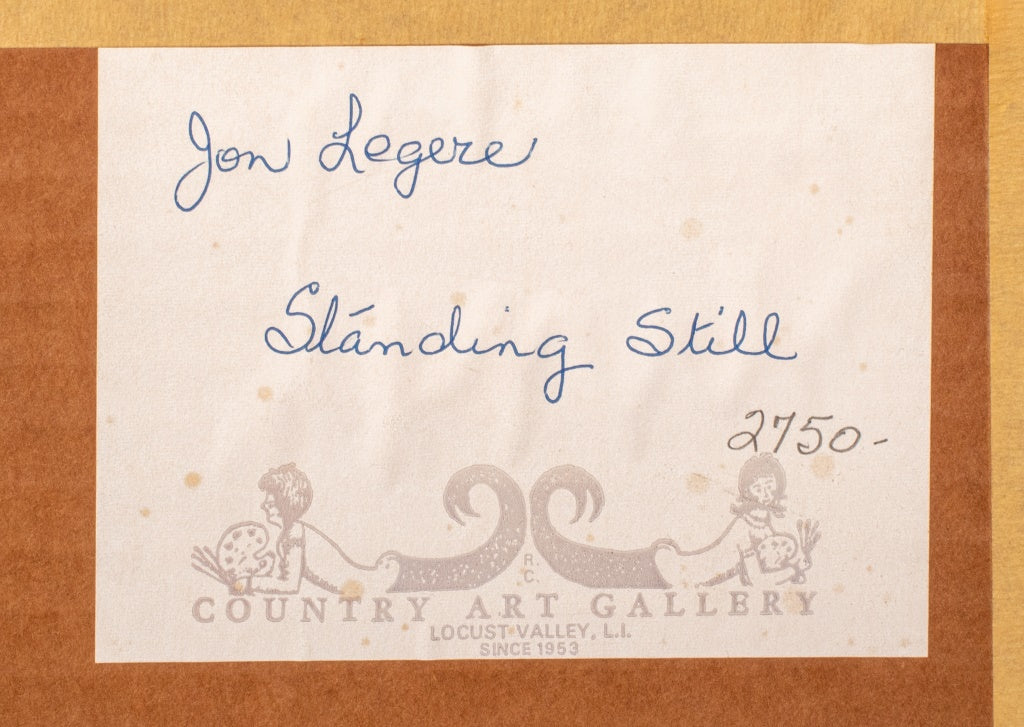 Jon Legere
Standing Still
2750-
R.
C.
COUNTRY ART GALLERY
LOCUST VALLEY, L.I.
SINCE 1953